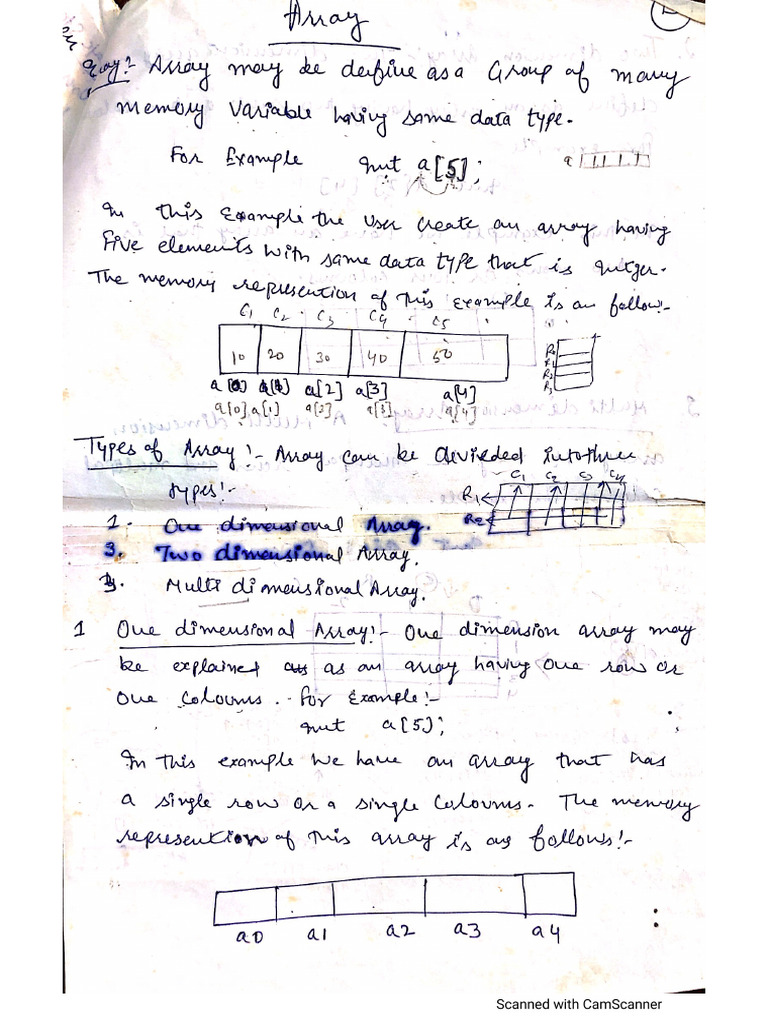 Array
Array:- Array may be define as a Group of many
memory variable having same data type.
For Example int a[5];
a
In this Example the user create an array having
Five elements with same data type that is intger.
The memory represention of this example is as follow:-
C1 C2 C3 C4 C5
10 20 30 40 50
a[0] a[1] a[2] a[3] a[4]
a[0] a[1] a[2] a[3] a[4]
R0
R1
R2
R3
Types of Array:- Array can be divieded into three
types:-
C1 C2 C3 C4
R1
R2
1. One dimensional Array.
3. Two dimensional Array.
3. Multi dimensional Array.
1 One dimensional Array:- One dimension array may
be explained as as an array having one row or
one coloums. for Example:-
int a[5];
In this example we have an array that has
a single row or a single coloums. The memory
represention of this array is as follows:-
a0 a1 a2 a3 a4
Scanned with CamScanner